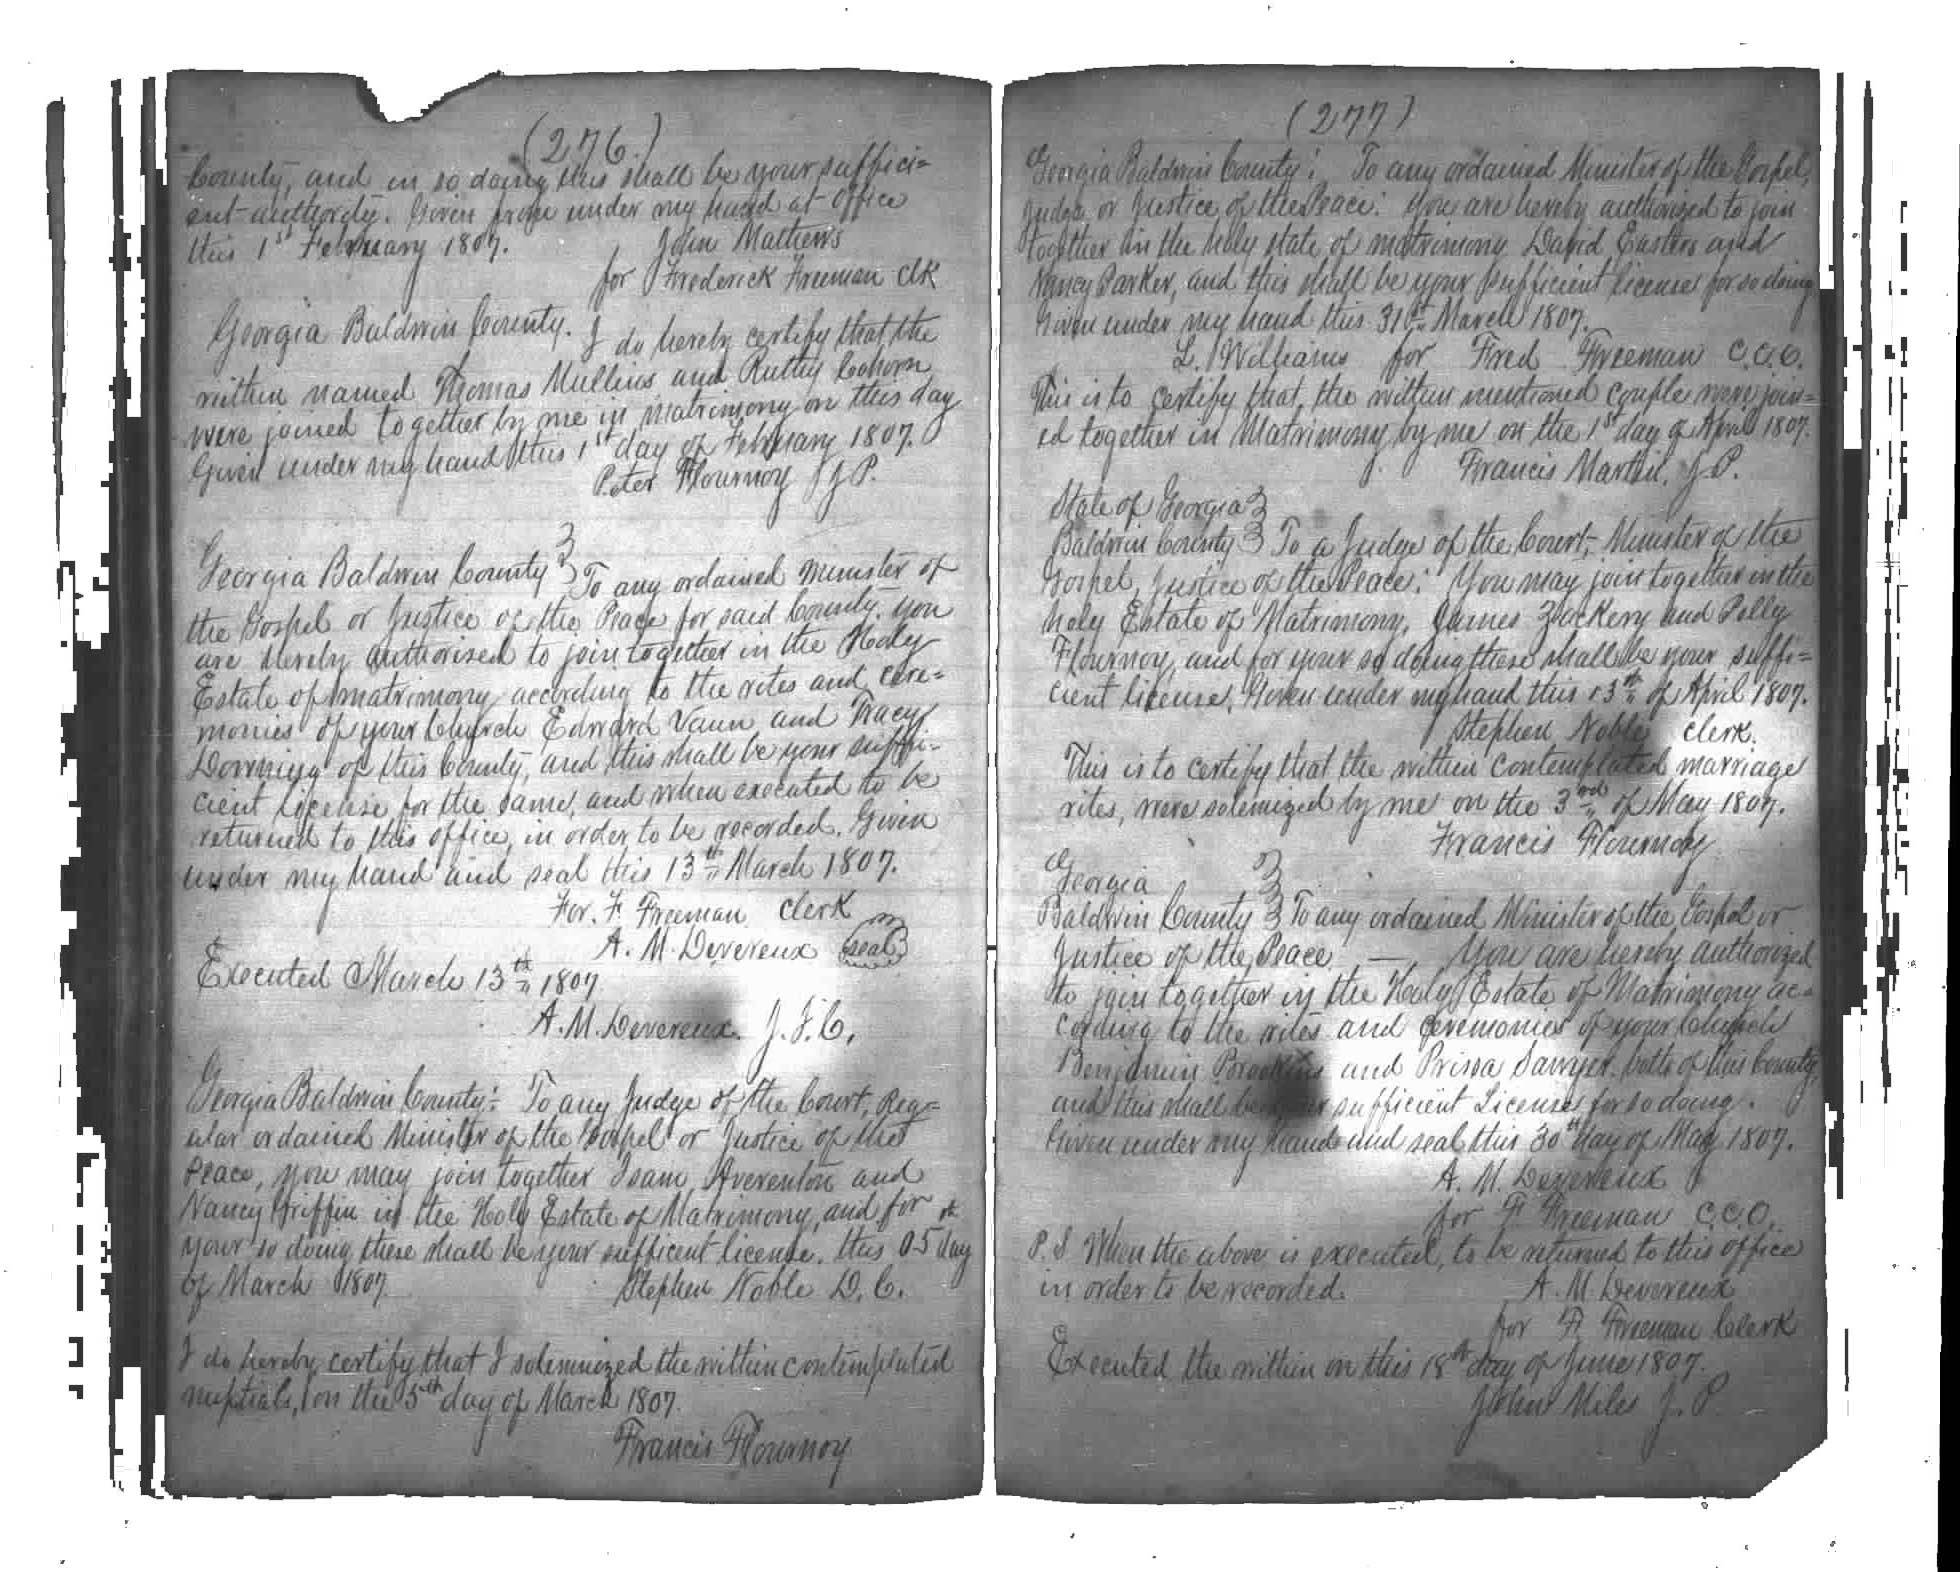 (276.)
County, and in so doing this shall be your suffici=
ent authority. Given from under my hand at office
this 1st February 1807. John Mathews
for Frederick Freeman Clk
Georgia Baldwin County. I do hereby certify that the
within named Thomas Mullins and Ruthy Cohorn
were joined together by me in matrimony on this day
Given under my hand this 1st day of February 1807.
Peter Flournoy J P.
Georgia Baldwin County } To any ordained minister of
the Gospel or Justice of the Peace for said County. You
are hereby authorised to join together in the Holy
Estate of matrimony according to the rites and cere=
monies of your Church Edward Vaun and Tracy
Downing of this County, and this shall be your suffi-
cient License for the same, and when executed to be
returned to this office, in order to be recorded. Given
under my hand and seal this 13th March 1807.
For. F. Freeman Clerk
A. M. Devereux seal
Executed March 13th 1807
A. M. Devereux. J. I. C.
Georgia Baldwin County: To any Judge of the Court, Reg=
ular ordained Minister of the Gospel or Justice of the
Peace, you may join together Isam Averenton and
Nancy Griffin in the Holy Estate of Matrimony, and for
your so doing these shall be your sufficent license. this 05th day
of March 1807. Stephen Noble D. C.
I do hereby certify that I solemnized the within contemplated
nuptials, on the 5th day of March 1807.
Francis Flournoy
(277)
Georgia Baldwin County: To any ordained Minister of the Gospel,
Judge or Justice of the Peace: You are hereby authorized to join
together in the holy state of matrimony David Easters and
Nancy Parker, and this shall be your sufficient license for so doing
Given under my hand this 31st March 1807.
L. Williams for Fred Freeman C.C.C.
This is to certify that the within mentioned couple were join=
ed together in Matrimony by me on the 1st day of April 1807.
Francis Martin, J.P.
State of Georgia }
Baldwin County } To a Judge of the Court, Minister of the
Gospel, Justice of the Peace: You may join together in the
holy Estate of Matrimony, James Zackery and Polly
Flournoy, and for your so doing these shall be your suffi=
cient license, Given under my hand this 13th of April 1807.
Stephen Noble Clerk.
This is to certify that the within contemplated marriage
rites, were solemized by me on the 3rd of May 1807.
Francis Flournoy
Georgia }
Baldwin County } To any ordained Minister of the Gospel or
Justice of the Peace —, You are hereby authorized
to join together in the Holy Estate of Matrimony ac=
cording to the rites and ceremonies of your Church
Benjamin and Prissa Sawyer. both of this County,
and this shall be your sufficient License for so doing.
Given under my hand and seal this 30th day of May 1807.
A. M. Devereux
for F. Freeman C.C.O.
P. S. When the above is executed, to be returned to this office
in order to be recorded. A. M. Devereux
for F. Freeman Clerk
Executed the within on this 18th day of June 1807.
John Miles J. P.